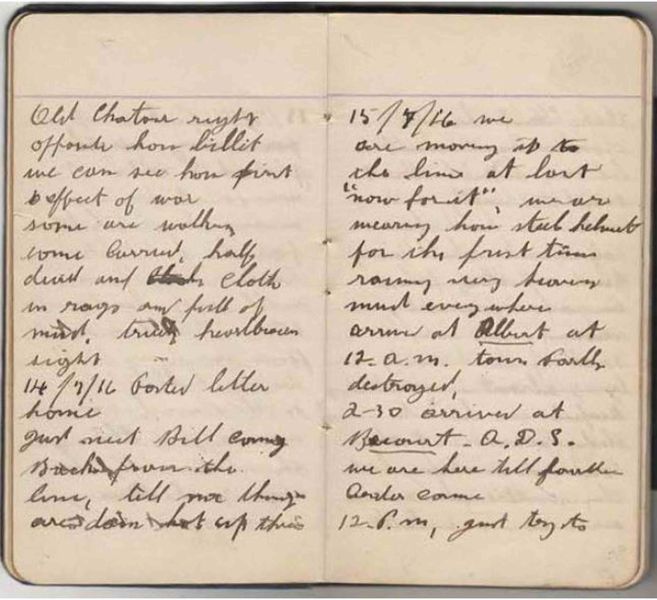 Old Chatour right
opposite how billit
we can see how first
effect of war
some are walking
some carried, half
dead and cloth
in rags and full of
mud, heartbroken
sight
14/7/16 Posted letter
home
just meet Bill coming
Back from the
line, tell me things
are hot up
15/7/16 we
are moving up to
the line at last
"now for it", we are
wearing how steel helmet
for the first time
raining very heavy
mud everywhere
arrive at Albert at
12-a.m. town partly
destroyed,
2-30 arrived at
Becourt - A.D.S.
we are here till further
order come
12-P.m, just try to